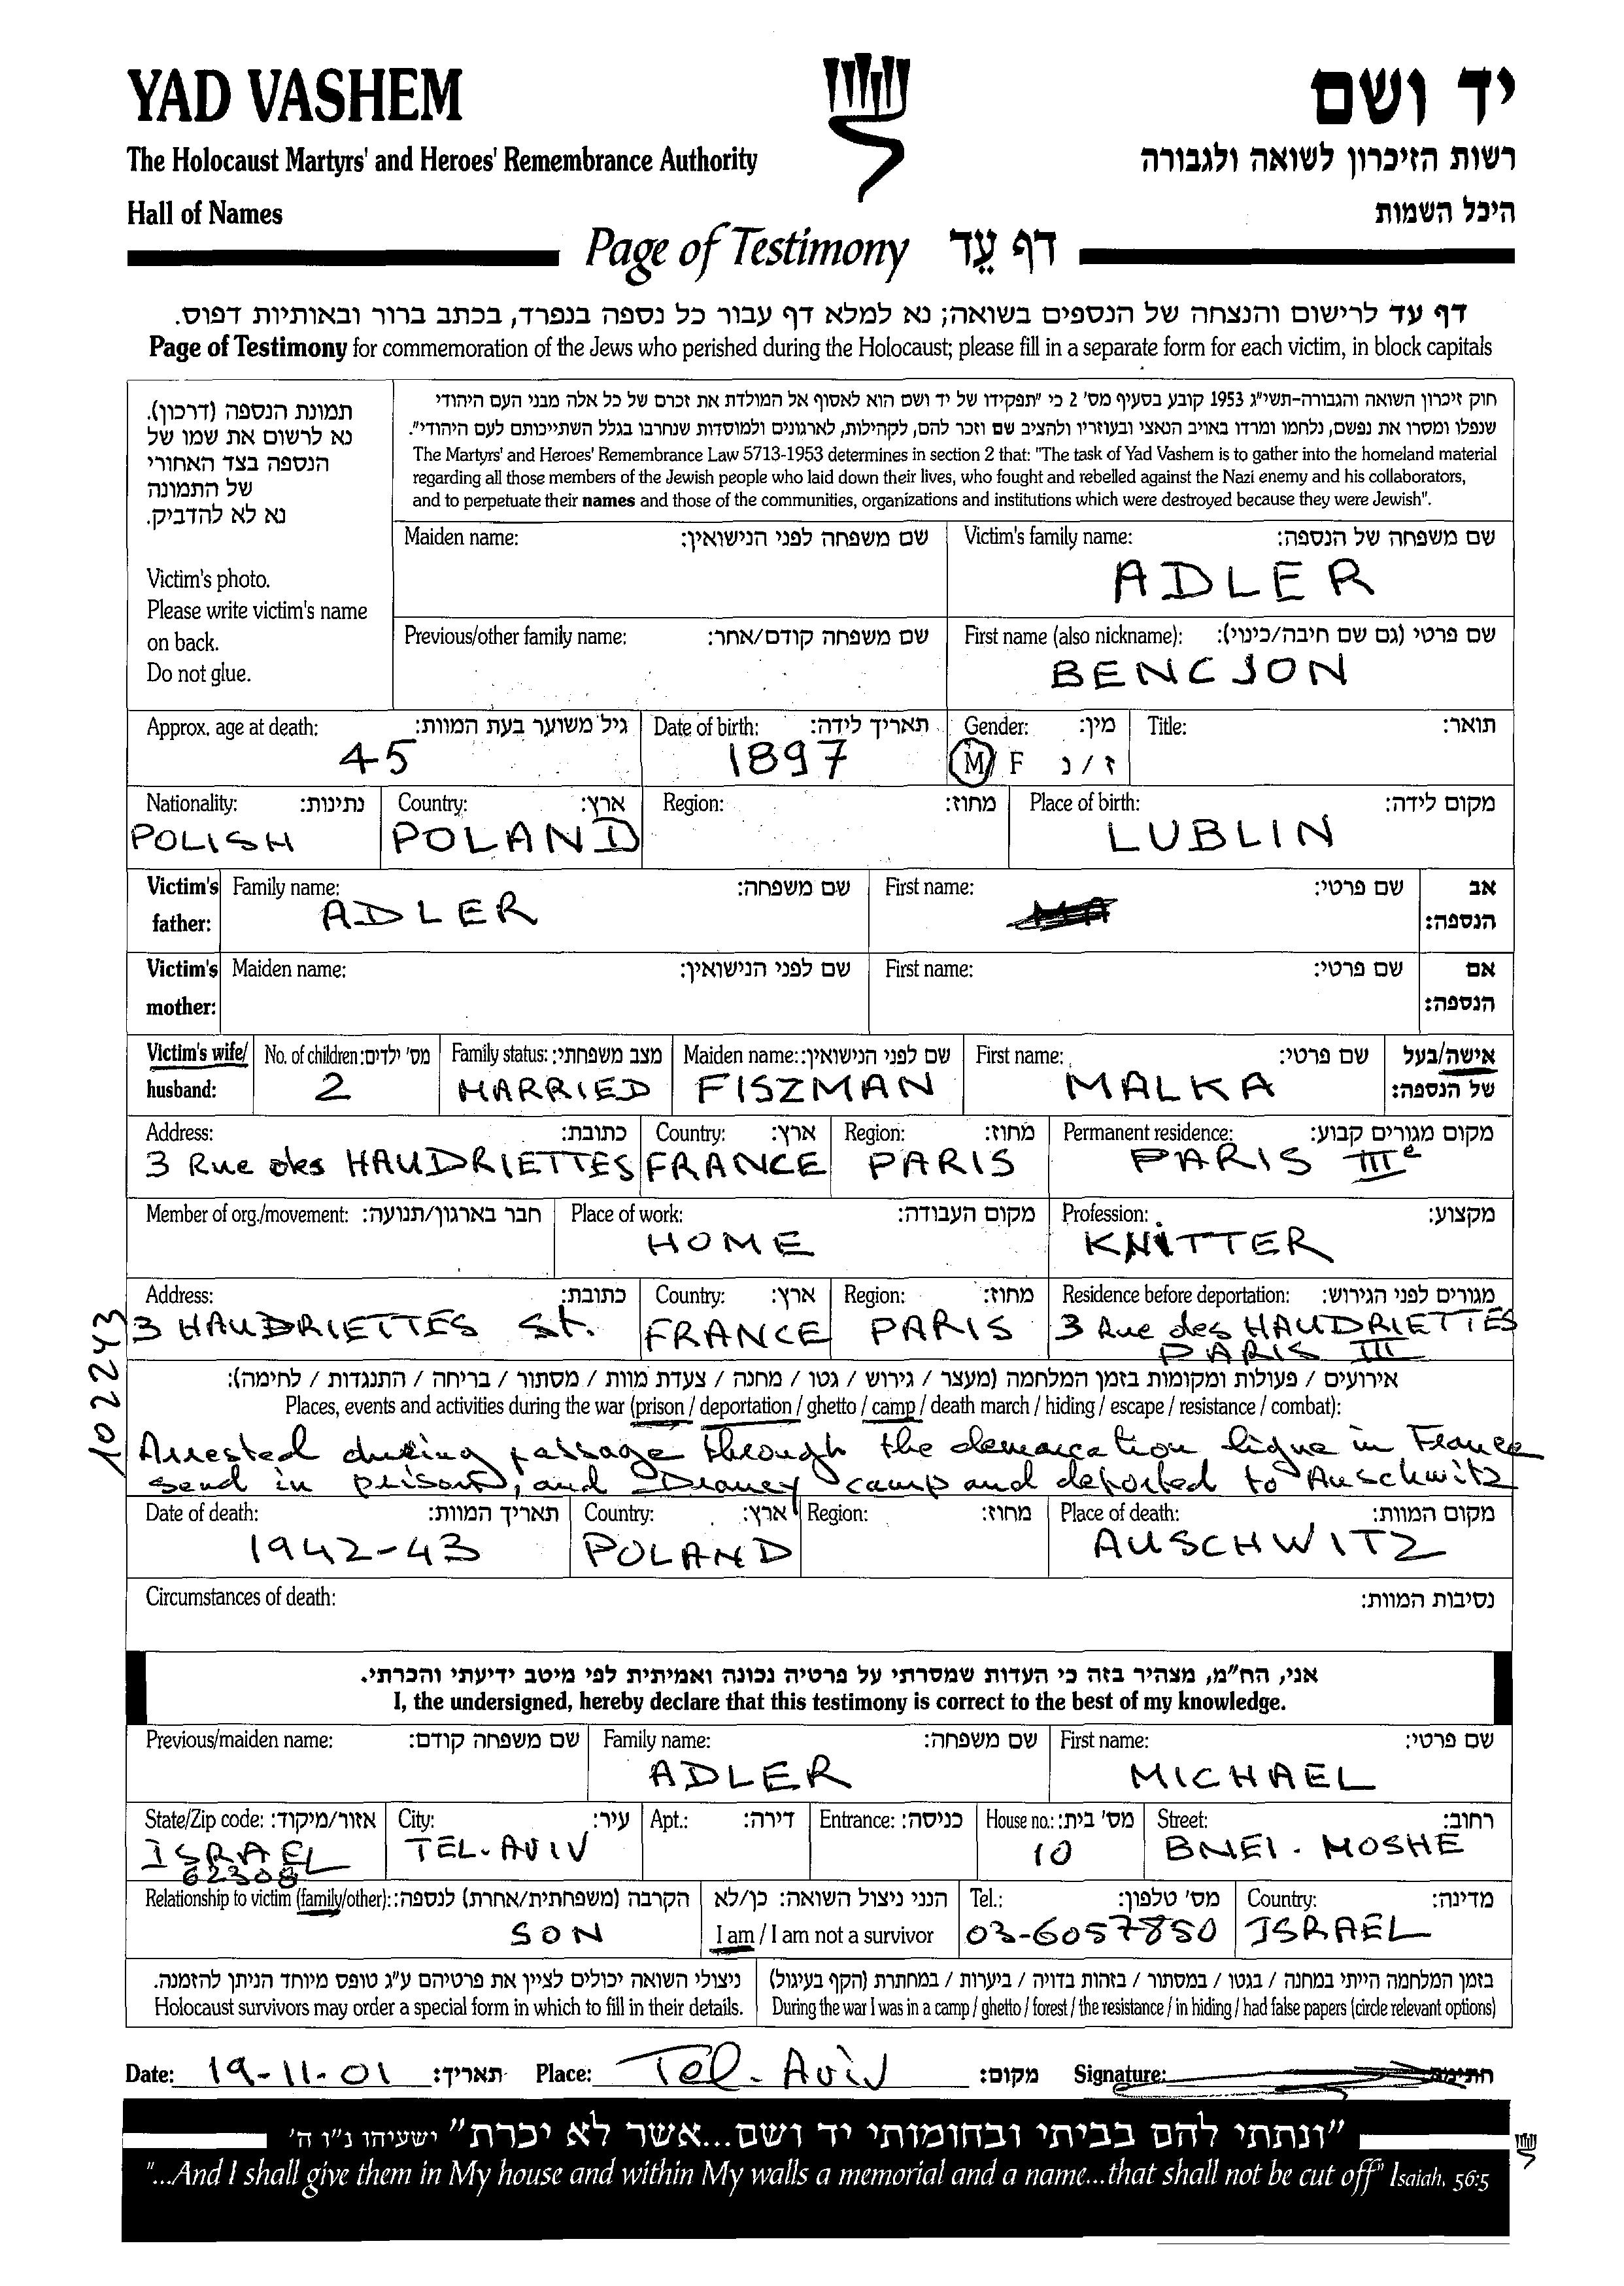 YAD VASHEM
יד ושם
The Holocaust Martyrs' and Heroes' Remembrance Authority
רשות הזיכרון לשואה ולגבורה
Hall of Names
היכל השמות
Page of Testimony דף עֵד
דף עד לרישום והנצחה של הנספים בשואה; נא למלא דף עבור כל נספה בנפרד, בכתב ברור ובאותיות דפוס.
Page of Testimony for commemoration of the Jews who perished during the Holocaust; please fill in a separate form for each victim, in block capitals
תמונת הנספה (דרכון).
נא לרשום את שמו של
הנספה בצד האחורי
של התמונה
נא לא להדביק.
Victim's photo.
Please write victim's name
on back.
Do not glue.
חוק זיכרון השואה והגבורה-תשי"ג 1953 קובע בסעיף מס' 2 כי "תפקידו של יד ושם הוא לאסוף אל המולדת את זכרם של כל אלה מבני העם היהודי
שנפלו ומסרו את נפשם, נלחמו ומרדו באויב הנאצי ובעוזריו ולהציב שם וזכר להם, לקהילות, לארגונים ולמוסדות שנחרבו בגלל השתייכותם לעם היהודי".
The Martyrs' and Heroes' Remembrance Law 5713-1953 determines in section 2 that: "The task of Yad Vashem is to gather into the homeland material
regarding all those members of the Jewish people who laid down their lives, who fought and rebelled against the Nazi enemy and his collaborators,
and to perpetuate their names and those of the communities, organizations and institutions which were destroyed because they were Jewish".
Maiden name: שם משפחה לפני הנישואין: Victim's family name: שם משפחה של הנספה:
ADLER
Previous/other family name: שם משפחה קודם/אחר: First name (also nickname): שם פרטי (גם שם חיבה/כינוי):
BENCJON
Approx. age at death: גיל משוער בעת המוות: Date of birth: תאריך לידה: Gender: מין: Title: תואר:
45 1897 M F ז / נ
Nationality: נתינות: Country: ארץ: Region: מחוז: Place of birth: מקום לידה:
POLISH POLAND LUBLIN
Victim's Family name: שם משפחה: First name: שם פרטי: אב
father: ADLER הנספה:
Victim's Maiden name: שם לפני הנישואין: First name: שם פרטי: אם
mother: הנספה:
Victim's wife/ No. of children: מס' ילדים: Family status: מצב משפחתי: Maiden name: שם לפני הנישואין: First name: שם פרטי: אישה/בעל
husband: 2 MARRIED FISZMAN MALKA של הנספה:
Address: כתובת: Country: ארץ: Region: מחוז: Permanent residence: מקום מגורים קבוע:
3 Rue des HAUDRIETTES FRANCE PARIS PARIS IIIe
Member of org./movement: חבר בארגון/תנועה: Place of work: מקום העבודה: Profession: מקצוע:
HOME KNITTER
Address: כתובת: Country: ארץ: Region: מחוז: Residence before deportation: מגורים לפני הגירוש:
3 HAUDRIETTES St. FRANCE PARIS 3 Rue des HAUDRIETTES
PARIS III
102243
אירועים / פעולות ומקומות בזמן המלחמה (מעצר / גירוש / גטו / מחנה / צעדת מוות / מסתור / בריחה / התנגדות / לחימה):
Places, events and activities during the war (prison / deportation / ghetto / camp / death march / hiding / escape / resistance / combat):
Arrested during passage through the demarcation ligne in France
send in prison, and Drancy camp and deported to Auschwitz
Date of death: תאריך המוות: Country: ארץ: Region: מחוז: Place of death: מקום המוות:
1942-43 POLAND AUSCHWITZ
Circumstances of death: נסיבות המוות:
אני, הח"מ, מצהיר בזה כי העדות שמסרתי על פרטיה נכונה ואמיתית לפי מיטב ידיעתי והכרתי.
I, the undersigned, hereby declare that this testimony is correct to the best of my knowledge.
Previous/maiden name: שם משפחה קודם: Family name: שם משפחה: First name: שם פרטי:
ADLER MICHAEL
State/Zip code: אזור/מיקוד: City: עיר: Apt.: דירה: Entrance: כניסה: House no.: מס' בית: Street: רחוב:
ISRAEL TEL-AVIV 10 BNEI-MOSHE
62308
Relationship to victim (family/other): הקרבה (משפחתית/אחרת) לנספה: הנני ניצול השואה: כן/לא Tel.: מס' טלפון: Country: מדינה:
SON I am / I am not a survivor 03-6057850 ISRAEL
ניצולי השואה יכולים לציין את פרטיהם ע"ג טופס מיוחד הניתן להזמנה. בזמן המלחמה הייתי במחנה / בגטו / במסתור / בזהות בדויה / ביערות / במחתרת (הקף בעיגול)
Holocaust survivors may order a special form in which to fill in their details. During the war I was in a camp / ghetto / forest / the resistance / in hiding / had false papers (circle relevant options)
Date: 19-11-01 תאריך: Place: Tel-Aviv מקום: Signature: חתימה:
"ונתתי להם בביתי ובחומותי יד ושם...אשר לא יכרת" ישעיהו נ"ו ה'
"...And I shall give them in My house and within My walls a memorial and a name...that shall not be cut off" Isaiah, 56:5